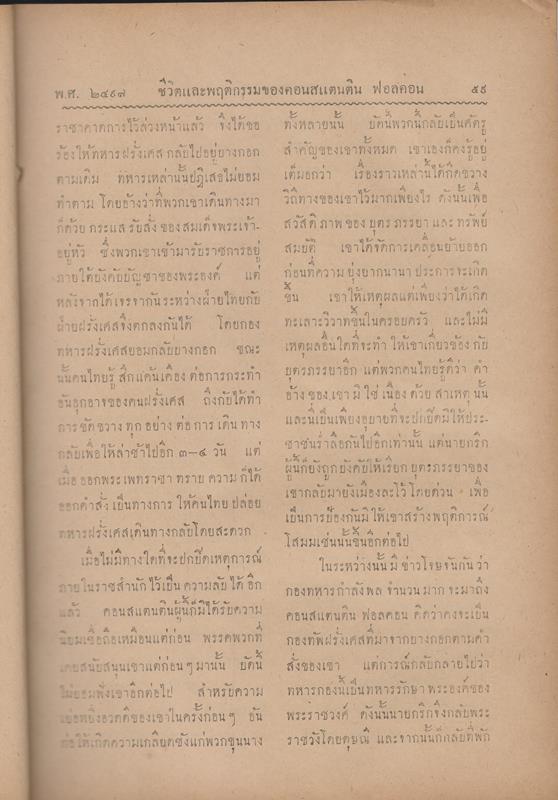 พ.ศ. ๒๔๙๗ ชีวิตและพฤติกรรมของคอนสแตนติน ฟอลคอน ๕๙
ราชาคาดการไว้ล่วงหน้าแล้ว จึงได้ขอ
ร้องให้ทหารฝรั่งเศส กลับไปอยู่บางกอก
ตามเดิม ทหารเหล่านั้นปฏิเสธไม่ยอม
ทำตาม โดยอ้างว่าที่พวกเขาเดินทางมา
ก็ด้วย กระแส รับสั่ง ของ สมเด็จพระเจ้า-
อยู่หัว ซึ่งพวกเขาเข้ามารับราชการอยู่
ภายใต้บังคับบัญชาของพระองค์ แต่
หลังจากได้เจรจากันระหว่างฝ่ายไทยกับ
ฝ่ายฝรั่งเศสจึงตกลงกันได้ โดยกอง
ทหารฝรั่งเศสยอมกลับบางกอก ขณะ
นั้นคนไทยรู้ สึกแค้นเคือง ต่อการกระทำ
อันอุกอาจของคนฝรั่งเศส ถึงกับได้ทำ
การขัดขวาง ทุก อย่าง ต่อ การ เดิน ทาง
กลับเพื่อให้ล่าช้าไปอีก ๓-๔ วัน แต่
เมื่อ ออกพระ เพทราชา ทราบ ความ ก็ได้
ออกคำสั่ง เป็นทางการ ให้คนไทย ปล่อย
ทหารฝรั่งเศสเดินทางกลับโดยสะดวก
เมื่อไม่มีทางใดที่จะปกปิดเหตุการณ์
ภายในราชสำนัก ไว้เป็น ความลับ ได้ อีก
แล้ว คอนสแตนตินผู้นี้ก็มิได้รับความ
นิยมเชื่อถือเหมือนแต่ก่อน พรรคพวกที่
เคยสนับสนุนเขาแต่ก่อนๆ มานั้น บัดนี้
ไม่ยอมฟังเขาอีกต่อไป สำหรับความ
เย่อหยิ่งอวดดีของเขาในครั้งก่อนๆ อัน
ก่อให้เกิดความเกลียดชังแก่พวกขุนนาง
ทั้งหลายนั้น บัดนี้พวกนี้กลับเป็นศัตรู
สำคัญของเขาทั้งหมด เขาเองก็คงรู้อยู่
เต็มอกว่า เรื่องราวเหล่านี้ได้กีดขวาง
วิถีทางของเขาไว้มากเพียงไร ดังนั้นเพื่อ
สวัสดิ ภาพ ของ บุตร ภรรยา และ ทรัพย์
สมบัติ เขาได้จัดการเคลื่อนย้ายออก
ก่อนที่ความ ยุ่งยากนานา ประการ จะเกิด
ขึ้น เขาให้เหตุผลแต่เพียงว่าได้เกิด
ทะเลาะวิวาทขึ้นในครอบครัว และไม่มี
เหตุผลอื่นใดที่จะทำ ให้เขาเกี่ยวข้อง กับ
บุตรภรรยาอีก แต่พวกคนไทยรู้ดีว่า คำ
อ้าง ของ เขา มิ ใช่ เนื่อง ด้วย สาเหตุ นั้น
และนี่เป็นเพียงอุบายที่จะปกปิดมิให้ประ-
ชาชนร่ำลือกันไปอีกเท่านั้น แต่นายกรีก
ผู้นี้ก็ยังถูกบังคับให้เรียก บุตรภรรยาของ
เขากลับมายังเมืองละโว้ โดยด่วน เพื่อ
เป็นการป้องกันมิ ให้เขาสร้างพฤติการณ์
โสมมเช่นนั้นขึ้นอีกต่อไป
ในระหว่างนั้น มี ข่าวโจษจันกัน ว่า
กองทหารกำลังพล จำนวน มาก จะมาถึง
คอนสแตนติน ฟอลคอน คิดว่าคงจะเป็น
กองทัพฝรั่งเศสที่มาจากบางกอกตามคำ
สั่งของเขา แต่การณ์กลับกลายไปว่า
ทหารกองนี้เป็นทหารรักษา พระองค์ของ
พระราชวงศ์ ดังนั้นนายกรีกจึงกลับพระ
ราชวังโดยดุษณี และจากนั้นก็กลับที่พัก